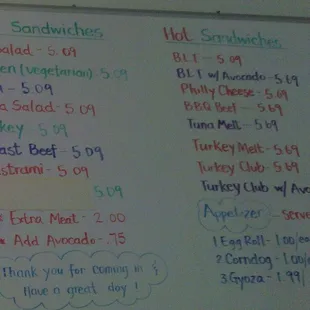 Sandwiches
Salad - 5.09
en (vegetarian) 5.09
- 5.09
a Salad - 5.09
key 5.09
ast Beef - 5.09
strami - 5.09
5.09
* Extra Meat - 2.00
* Add Avocado - .75
Thank you for coming in &
Have a great day !
Hot Sandwiches
BLT - 5.09
BLT w/ Avocado - 5.69
Philly Cheese - 5.69
BBQ Beef - 5.69
Tuna Melt - 5.69
Turkey Melt - 5.69
Turkey Club - 5.69
Turkey Club w/ Avo
Appetizer - Serve
1 Egg Roll - 1.00/ea
2 Corndog - 1.00/e
3 Gyoza - 1.99/